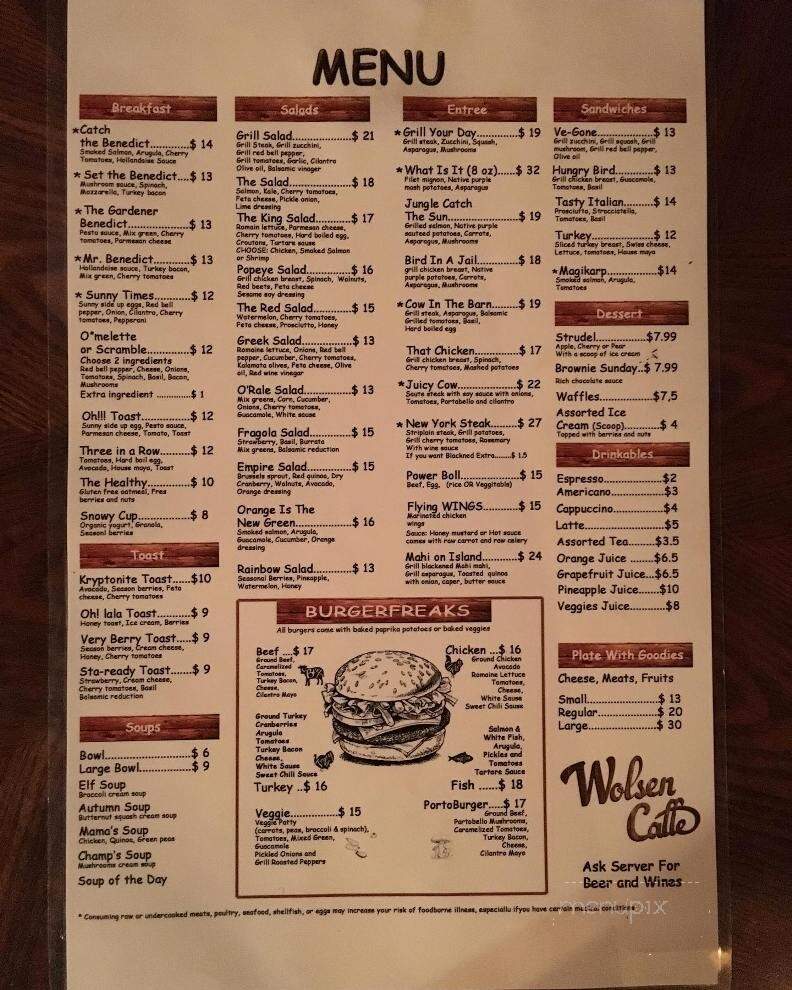 MENU
Breakfast
*Catch
the Benedict....................$ 14
Smoked Salmon, Arugula, Cherry
Tomatoes, Hollandaise Sauce
* Set the Benedict....$ 13
Mushroom sauce, Spinach,
Mozzarella, Turkey bacon
*The Gardener
Benedict.......................$ 13
Pesto sauce, Mix green, Cherry
tomatoes, Parmesan cheese
*Mr. Benedict................$ 13
Hollandaise sauce, Turkey bacon,
Mix green, Cherry tomatoes
* Sunny Times..............$ 12
Sunny side up eggs, Red bell
pepper, Onion, Cilantro, Cherry
tomatoes, Pepperoni
O*melette
or Scramble..................$ 12
Choose 2 ingredients
Red bell pepper, Cheese, Onions,
Tomatoes, Spinach, Basil, Bacon,
Mushrooms
Extra ingredient .............$ 1
Oh!!! Toast...................$ 12
Sunny side up egg, Pesto sauce,
Parmesan cheese, Tomato, Toast
Three in a Row.............$ 12
Tomatoes, Hard boil egg,
Avocado, House mayo, Toast
The Healthy..................$ 10
Gluten free oatmeal, Fres
berries and nuts
Snowy Cup....................$ 8
Organic yogurt, Granola,
Seasonl berries
Toast
Kryptonite Toast......$10
Avocado, Season berries, Feta
cheese, Cherry tomatoes
Oh! lala Toast.............$ 9
Honey toast, Ice cream, Berries
Very Berry Toast.....$ 9
Season berries, Cream cheese,
Honey, Cherry tomatoes
Sta-ready Toast........$ 9
Strawberry, Cream cheese,
Cherry tomatoes, Basil
Balsamic reduction
Soups
Bowl............................$ 6
Large Bowl.................$ 9
Elf Soup
Broccoli cream soup
Autumn Soup
Butternut squash cream soup
Mama's Soup
Chicken, Quinoa, Green peas
Champ's Soup
Mushrooms cream soup
Soup of the Day
Salads
Grill Salad....................$ 21
Grill Steak, Grill zucchini,
Grill red bell pepper,
Grill tomatoes, Garlic, Cilantro
Olive oil, Balsamic vinager
The Salad....................$ 18
Salmon, Kale, Cherry tomatoes,
Feta cheese, Pickle onion,
Lime dressing
The King Salad............$ 17
Romain lettuce, Parmesan cheese,
Cherry tomatoes, Hard boiled egg,
Croutons, Tartare sause
CHOOSE: Chicken, Smoked Salmon
or Shrimp
Popeye Salad...............$ 16
Grill chicken breast, Spinach, Walnuts,
Red beets, Feta cheese
Sesame soy dressing
The Red Salad.............$ 15
Watermelon, Cherry tomatoes,
Feta cheese, Prosciutto, Honey
Greek Salad.................$ 13
Romaine lettuce, Onions, Red bell
pepper, Cucumber, Cherry tomatoes,
Kalamata olives, Feta cheese, Olive
oil, Red wine vinegar
O'Rale Salad................$ 13
Mix greens, Corn, Cucumber,
Onions, Cherry tomatoes,
Guacamole, White sause
Fragola Salad...............$ 15
Strawberry, Basil, Burrata
Mix greens, Balsamic reduction
Empire Salad...............$ 15
Brussels sprout, Red quinoa, Dry
Cranberry, Walnuts, Avocado,
Orange dressing
Orange Is The
New Green...................$ 16
Smoked salmon, Arugula,
Guacamole, Cucumber, Orange
dressing
Rainbow Salad.............$ 13
Seasonal Berries, Pineapple,
Watermelon, Honey
Entree
*Grill Your Day.............$ 19
Grill steak, Zucchini, Squash,
Asparagus, Mushrooms
*What Is It (8 oz).....$ 32
Filet mignon, Native purple
mash potatoes, Asparagus
Jungle Catch
The Sun.......................$ 19
Grilled salmon, Native purple
sauteed potatoes, Carrots,
Asparagus, Mushrooms
Bird In A Jail..............$ 18
grill chicken breast, Native
purple potatoes, Carrots,
Asparagus, Mushrooms
*Cow In The Barn........$ 19
Grill steak, Asparagus, Balsamic
Grilled tomatoes, Basil,
Hard boiled egg
That Chicken...............$ 17
Grill chicken breast, Spinach,
Cherry tomatoes, Mashed potatoes
*Juicy Cow...................$ 22
Saute steak with soy sauce with onions,
Tomatoes, Portabello and cilantro
*New York Steak.........$ 27
Striploin steak, Grill potatoes,
Grill cherry tomatoes, Rosemary
With wine sauce
If you want Blackned Extra........$ 1.5
Power Boll...................$ 15
Beef, Egg, (rice OR Veggitable)
Flying WINGS............$ 15
Marinated chicken
wings
Sauce: Honey mustard or Hot sauce
comes with raw carrot and raw celery
Mahi on Island...........$ 24
Grill blackened Mahi mahi,
Grill asparagus, Toasted quinoa
with onion, caper, butter sauce
Sandwiches
Ve-Gone.....................$ 13
Grill zucchini, Grill squash, Grill
mushroom, Grill red bell pepper,
Olive oil
Hungry Bird................$ 13
Grill chicken breast, Guacamole,
Tomatoes, Basil
Tasty Italian..............$ 14
Prosciutto, Stracciatella,
Tomatoes, Basil
Turkey........................$ 12
Sliced turkey breast, Swiss cheese,
Lettuce, tomatoes, House mayo
*Magikarp....................$14
Smoked salmon, Arugula,
Tomatoes
Dessert
Strudel....................$7.99
Apple, Cherry or Pear
With a scoop of ice cream
Brownie Sunday..$ 7.99
Rich chocolate sauce
Waffles....................$7,5
Assorted Ice
Cream (Scoop)..........$ 4
Topped with berries and nuts
Drinkables
Espresso.......................$2
Americano.....................$3
Cappuccino....................$4
Latte............................$5
Assorted Tea..........$3.5
Orange Juice ..........$6.5
Grapefruit Juice...$6.5
Pineapple Juice.......$10
Veggies Juice...........$8
Plate With Goodies
Cheese, Meats, Fruits
Small.......................$ 13
Regular...................$ 20
Large.......................$ 30
Wolsen
Caffe
Ask Server For
Beer and Wines
BURGERFREAKS
All burgers come with baked paprika potatoes or baked veggies
Beef ....$ 17
Ground Beef,
Caramelized
Tomatoes,
Turkey Bacon,
Cheese,
Cilantro Mayo
Chicken ...$ 16
Ground Chicken
Avocado
Romaine Lettuce
Tomatoes,
Cheese,
White Sause
Sweet Chili Sause
Ground Turkey
Cranberries
Arugula
Tomatoes
Turkey Bacon
Cheese,
White Sause
Sweet Chili Sauce
Turkey ..$ 16
Salmon &
White Fish,
Arugula,
Pickles and
Tomatoes
Tartare Sauce
Fish ......$ 18
Veggie..................$ 15
Veggie Patty
(carrots, peas, broccoli & spinach),
Tomatoes, Mixed Green,
Guacamole
Pickled Onions and
Grill Roasted Peppers
PortoBurger.....$ 17
Ground Beef,
Portabello Mushrooms,
Caramelized Tomatoes,
Turkey Bacon,
Cheese,
Cilantro Mayo
* Consuming raw or undercooked meats, poultry, seafood, shellfish, or eggs may increase your risk of foodborne illness, especiallu ifyou have certain medical conditions
menupix